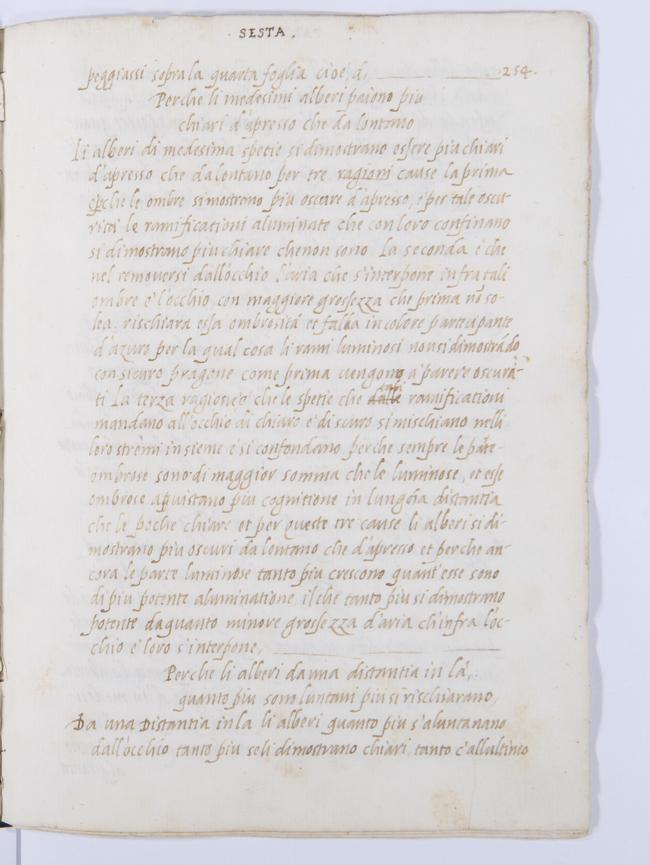 SESTA.
peggiassi sopra la quarta foglia cioe d. 254.
Perche li medesimi alberi paiono piu
chiari d'apresso che da lontano
Li alberi di medesima spetie si dimostrano essere piu chiari
d'apresso che da lontano per tre ragioni cause la prima
e perche le ombre si mostrano piu oscure d'apresso, e per tale oscu
rità le ramificationi aluminate che con loro confinano
si dimostrano piu chiare che non sono La seconda è che
nel removersi dall'occhio l'aria che s'interpone infra tali
ombre e l'occhio con maggiore grossezza che prima nō so-
lea, rischiara essa ombrosità et falla in colore partecipante
d'azuro per la qual cosa li rami luminosi non si dimostrādo
con sicuro pragone come prima uengono a parere oscurà-
ti La terza ragione è che le spetie che dalle ramificationi
mandano all'occhio di chiaro e di scuro si mischiano nelli
loro stremi insieme e si confondano, perche sempre le pāte-
ombrose sono di maggior somma che le luminose, et esse
ombrose aquistano piu cognitione in lungoia distantia
che le poche chiare et per queste tre cause li alberi si di-
mostrano piu oscuri da lontano che d'apresso et perche an-
cora le parte luminose tanto piu crescono quant'esse sono
di piu potente aluminatione, il che tanto piu si dimostrano
potente da quanto minore grossezza d'aria ch'infra l'oc-
chio e loro s'interpone,
Perche li alberi da una distantia in là,
quanto piu sono luntani piu si rischiarano,
Da una Distantia in la li alberi quanto piu s'aluntanano
dall'occhio tanto piu seli dimostrano chiari, tanto c'all'ultimo